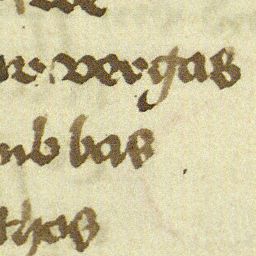 ar vergas
mb bas
thos